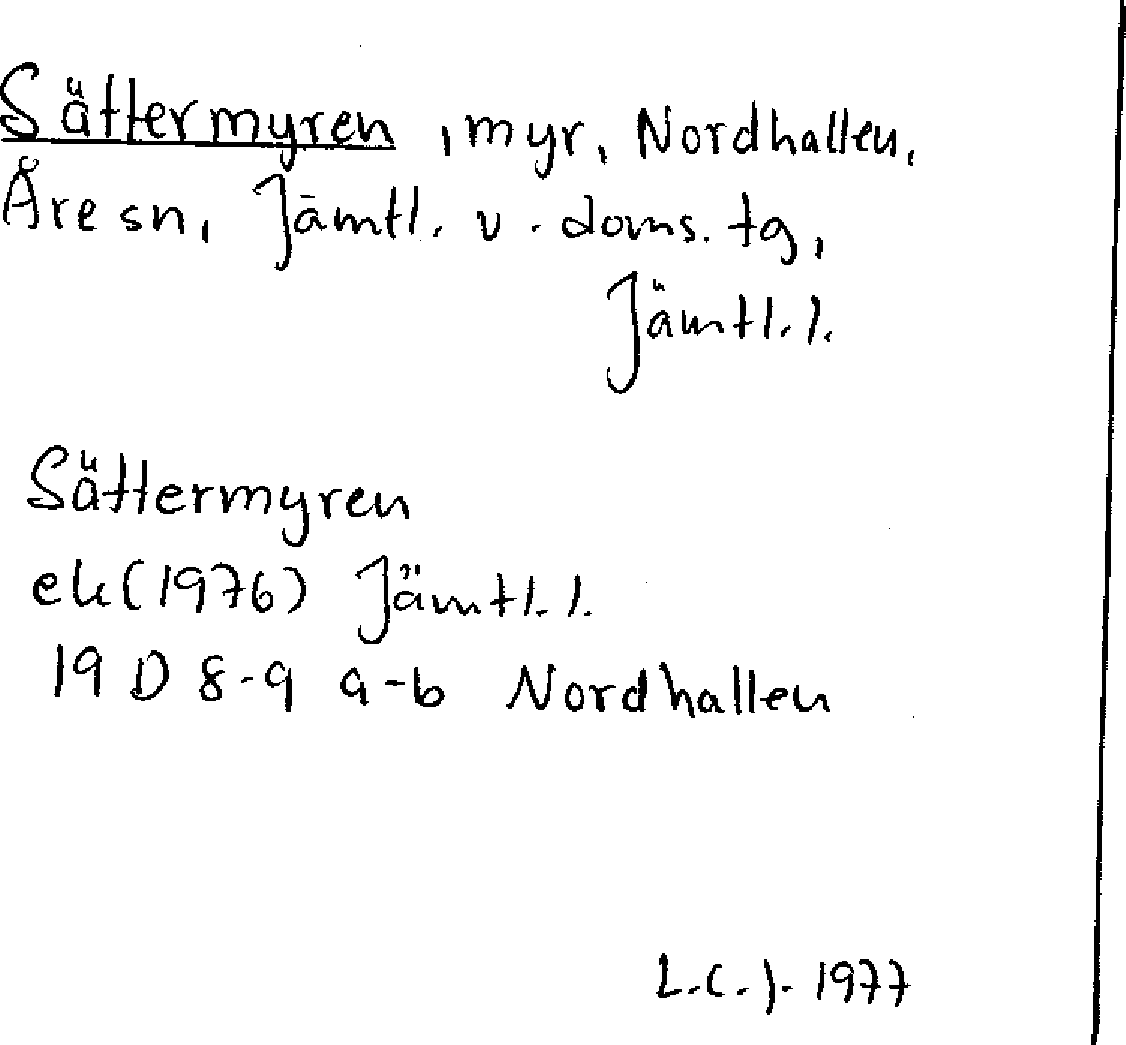 Sättermyren, myr, Nordhallen,
Åre sn, Jämtl. v. doms. tg,
Jämtl. l.
Sättermyren
ek (1976) Jämtl. l.
19 D 8-9 a-b Nordhallen
L.C.J. 1977